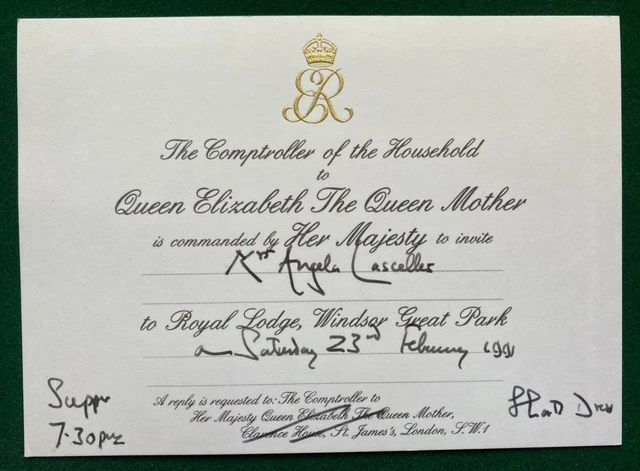 ER
The Comptroller of the Household
to
Queen Elizabeth The Queen Mother
is commanded by Her Majesty to invite
Mrs Angela Lascelles
to Royal Lodge, Windsor Great Park
on Saturday 23rd February 1991
A reply is requested to: The Comptroller to
Her Majesty Queen Elizabeth The Queen Mother,
Clarence House, St. James's, London, S.W.1
Supper
7.30pm
Short Dress